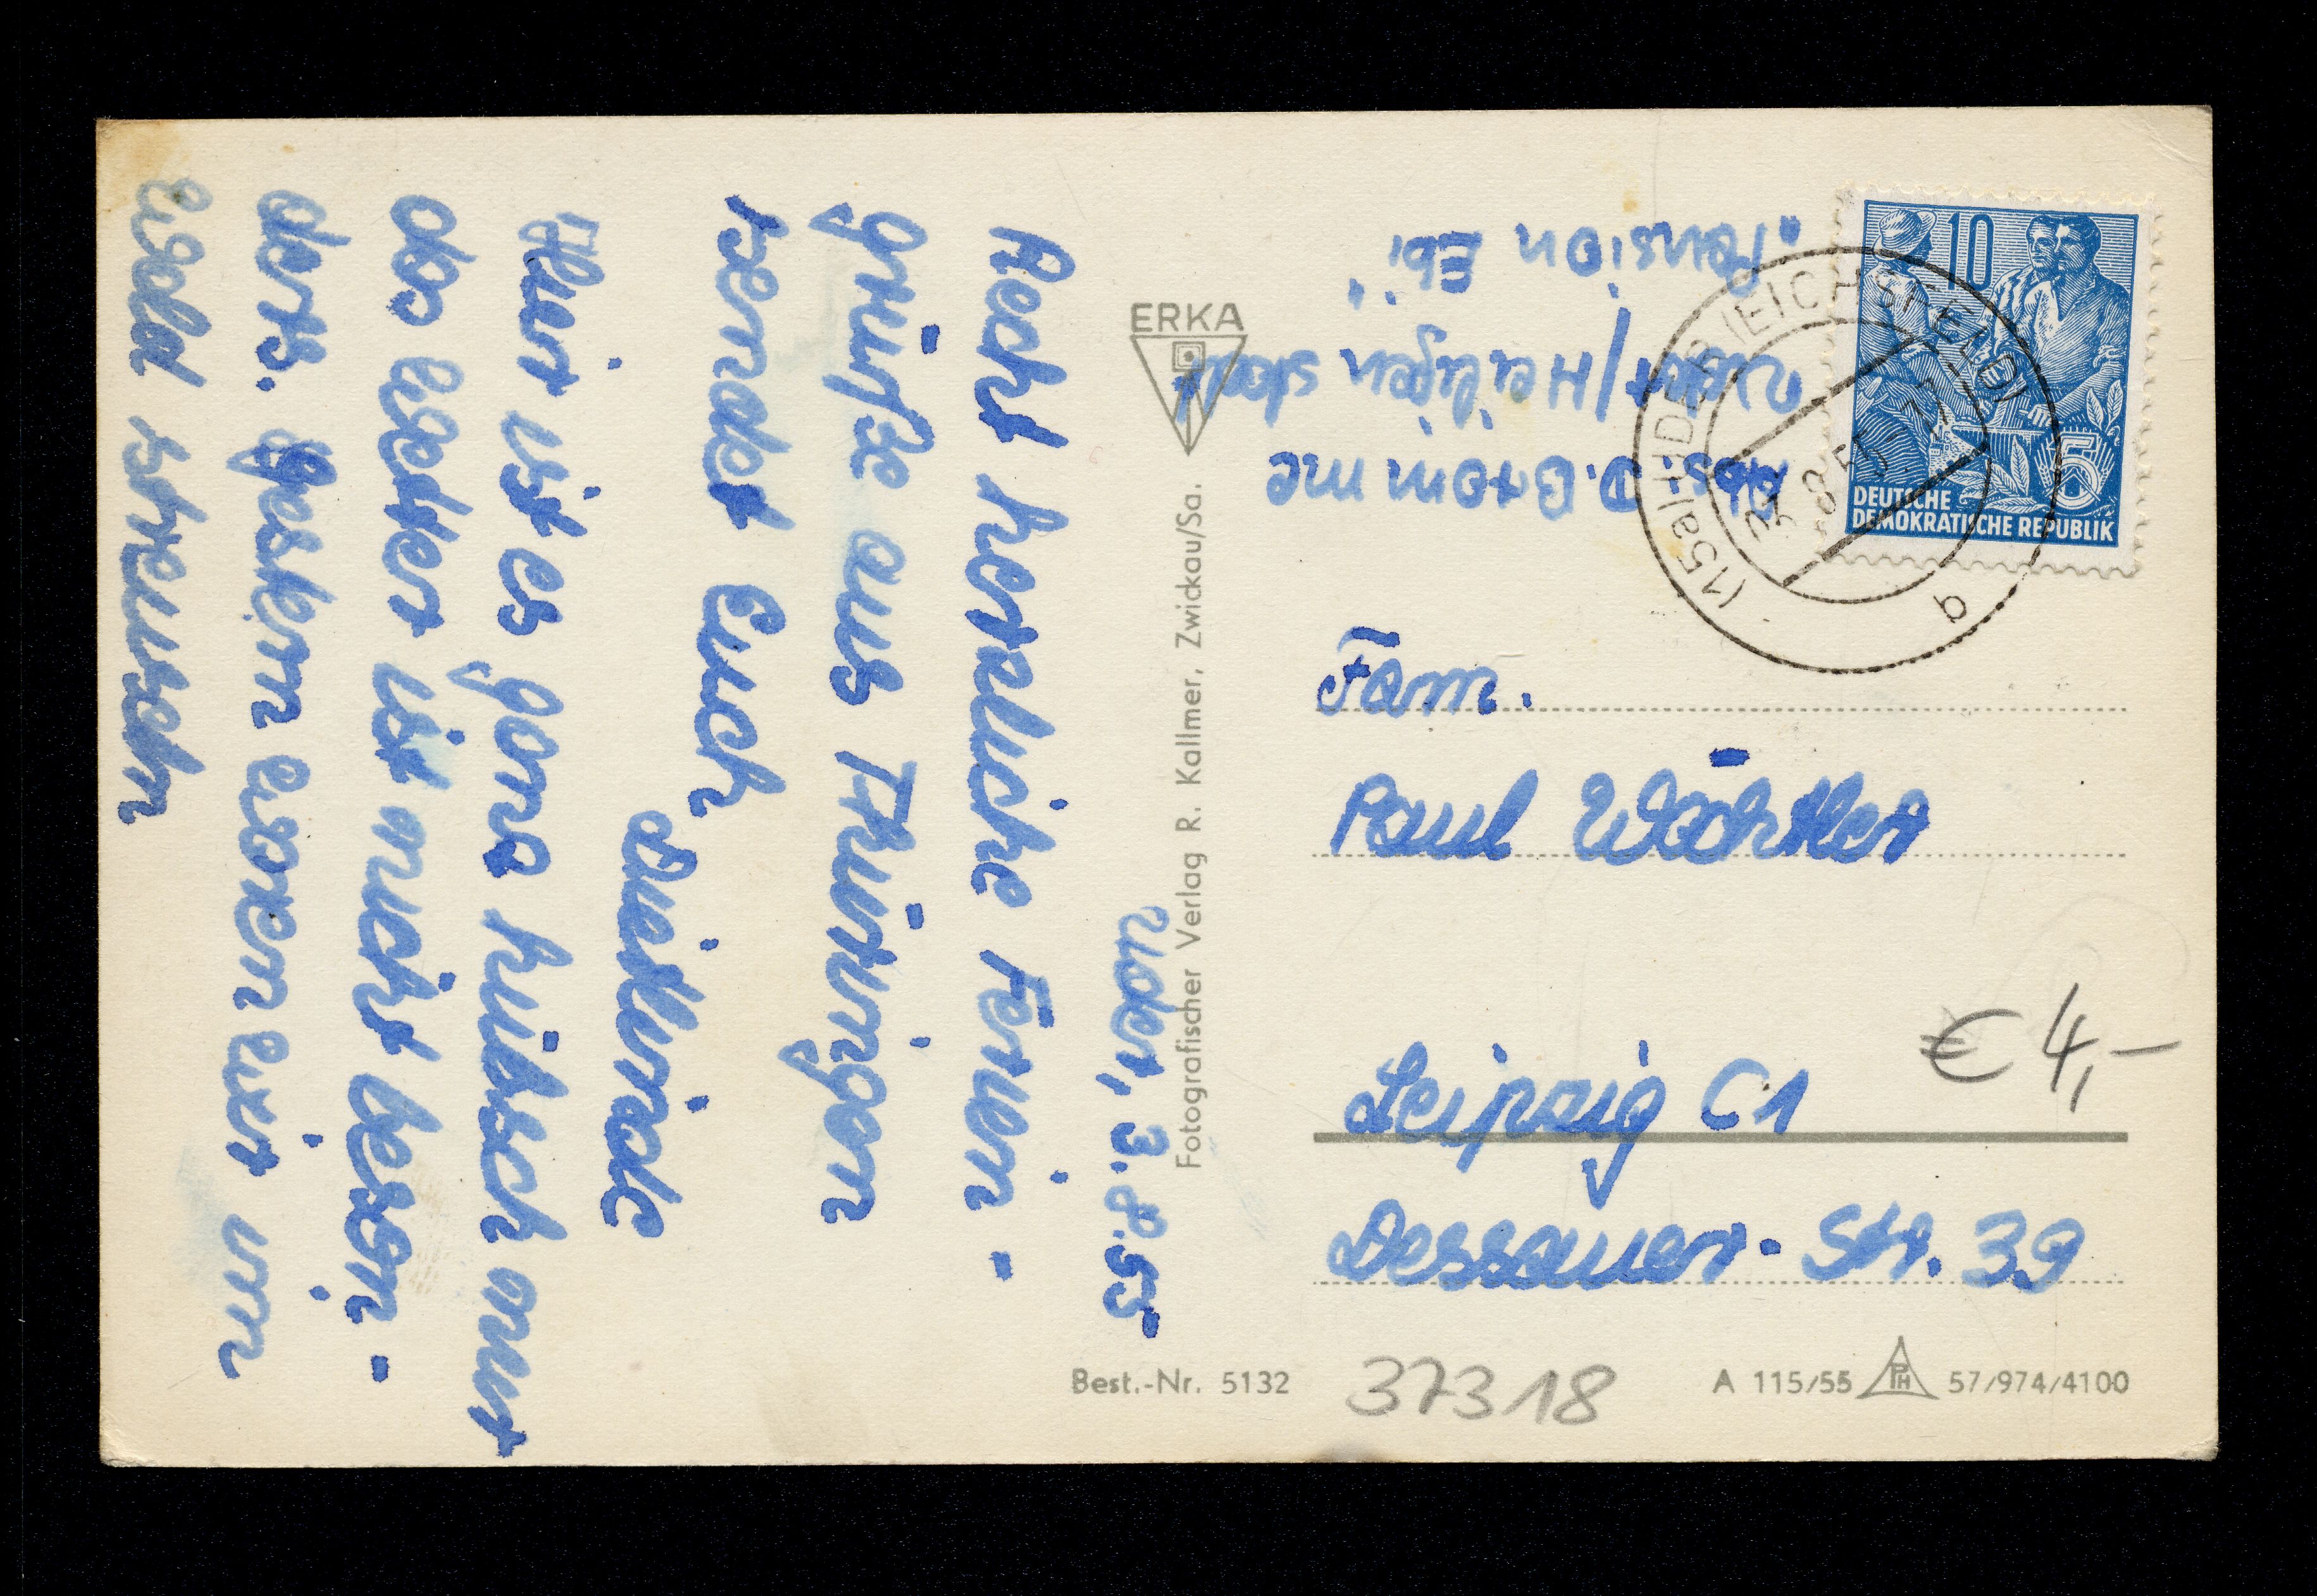 Uder, 3.8.55
Recht herzliche Ferien-
grüße aus Thüringen
sendet Euch
Dietlinde
Hier ist es ganz hübsch nur
das Wetter ist nicht beson-
ders. Gestern waren wir im
Wald
Fotografischer Verlag R. Kallmer, Zwickau/Sa.
ERKA
Abs: D. Bromme
Uder/Heiligenstadt
"Pension Ebi"
10
5
DEUTSCHE
DEMOKRATISCHE REPUBLIK
(15a) 
3.8.55
b
Fam.
Paul Wächtler
Leipzig C1
Dessauer-Str. 39
€ 4,-
Best.-Nr. 5132
37318
A 115/55 PH 57/974/4100